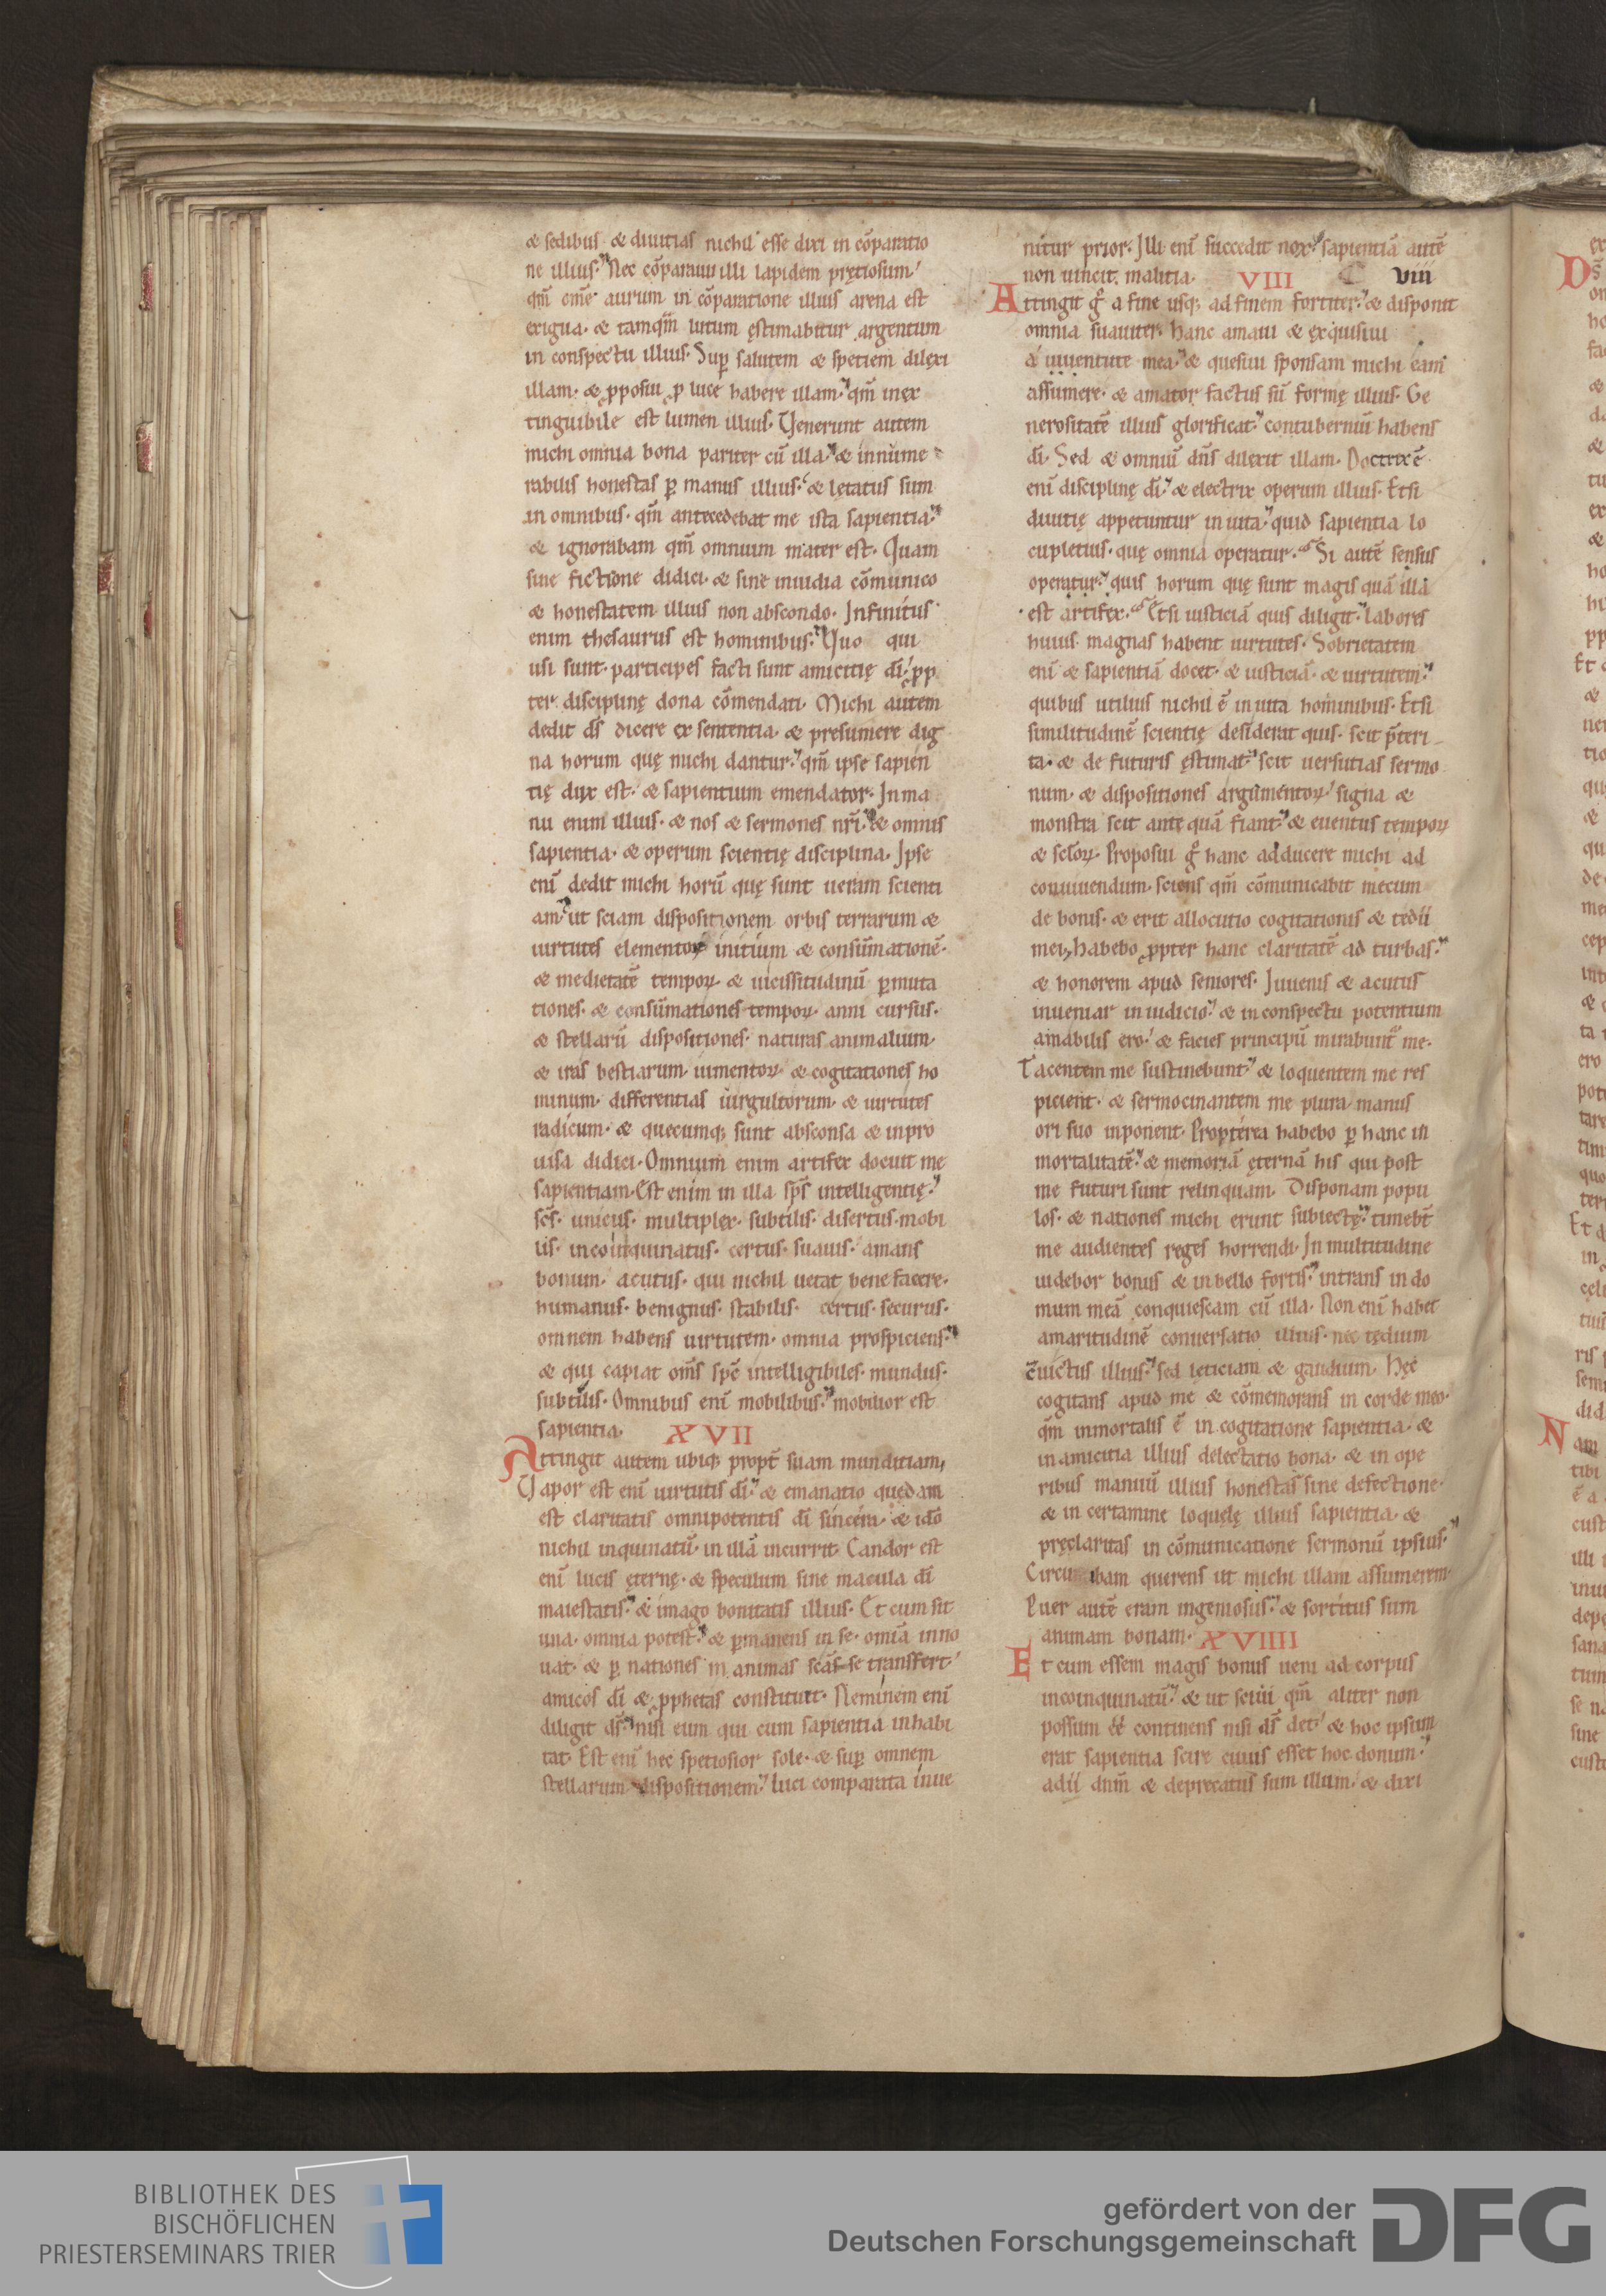 & sedibus· & diuitias nichil esse dixi in cōparatio
ne illius· Nec cōparaui illi lapidem pręciosum·
qm̄ om̄e aurum in cōparatione illius arena est
exigua· & tamqm̄ lutum ęstimabitur argentum
in conspectu illius· Sup̱ salutem & speciem dilexi
illam· & ꝓposui ꝓ luce habere illam· qm̄ inex
tinguibile est lumen illius· Uenerunt autem
michi omnia bona pariter cū illa· & innume
rabilis honestas ꝑ manus illius· & lętatus sum
in omnibus· qm̄ antecedebat me ista sapientia·
& ignorabam qm̄ omnium mater est· Quam
sine fictione didici· & sine inuidia cōmunico
& honestatem illius non abscondo· Infinitus
enim thesaurus est hominibus· Quo qui
usi sunt· participes facti sunt amicitię dī· ꝓp
ter disciplinę dona cōmendati· Michi autem
dedit ds̄ dicere ex sententia· & presumere dig
na horum quę michi dantur· qm̄ ipse sapien
tię dux est· & sapientium emendator· In ma
nu enim illius· & nos & sermones nr̄i· & omnis
sapientia· & operum scientię disciplina· Ipse
enī dedit michi horū quę sunt ueram scienti
am· ut sciam dispositionem orbis terrarum &
uirtutes elementoꝝ initium & consūmationē·
& medietatē tempoꝝ· & uicissitudinū ꝑmuta
tiones· & consūmationes tempoꝝ· anni cursus·
& stellarū dispositiones· naturas animalium·
& iras bestiarum· uimentoꝝ· & cogitationes ho
minum· differentias uirgultorum· & uirtutes
radicum· & quecumqꝫ sunt absconsa & inpro
uisa didici· Omnium enim artifex docuit me
sapientiam· Est enim in illa sps̄ intelligentię·
scs̄· unicus· multiplex· subtilis· disertus· mobi
lis· incoinquinatus· certus· suauis· amans
bonum· acutus· qui nichil uetat bene facere·
humanus· benignus· stabilis· certus· securus·
omnem habens uirtutem· omnia prospiciens·
& qui capiat om̄s spc̄ intelligibiles· mundus·
subtilis· Omnibus enī mobilibus· mobilior est
sapientia· XVII
Attingit autem ubiqꝫ propt̄ suam munditiam,
Uapor est enī uirtutis dī· & emanatio quędam
est claritatis omnipotentis dī sincera· & idō
nichil inquinatū· in illā incurrit· Candor est
enī lucis ęternę· & speculum sine macula dī
maiestatis· & imago bonitatis illius· Et cum sit
una· omnia potest· & ꝑmanens in se· omīa inno
uat· & ꝑ nationes in animas scās se transfert·
amicos dī & ꝓphetas constituit· Neminem enī
diligit ds̄· nisi eum qui cum sapientia inhabi
tat· Est enī hec speciosior sole· & suꝑ omnem
stellarum dispositionem· luci comparata inue
nitur prior· Illi enī succedit nox· sapientiā autē
non uincit malitia· VIII viii
Attingit gͦ a fine usqꝫ ad finem fortiter· & disponit
omnia suauiter· Hanc amaui & exquisiui
a iuuentute mea· & quesiui sponsam michi eam
assumere· & amator factus sū formę illius· Ge
nerositatē illius glorificat· contuberniū habens
dī· Sed & omniū dn̄s dilexit illam· Doctrix ē
enī disciplinę dī· & electrix operum illius· Etsi
diuitię appetuntur in uita· quid sapientia lo
cupletius· quę omnia operatur· Si autē sensus
operatur· quis horum quę sunt magis quā illa
est artifex· Etsi iusticiā quis diligit· labores
huius magnas habent uirtutes· Sobrietatem
enī & sapientiā docet· & iusticiā· & uirtutem·
quibus utilius nichil ē in uita hominibus· Etsi
similitudinē scientię desiderat quis· scit p̄teri
ta· & de futuris ęstimat· scit uersutias sermo
num· & dispositiones argumentoꝝ· signa &
monstra scit ante quā fiant· & euentus tempoꝝ
& scl̄oꝝ· Proposui gͦ hanc adducere michi ad
conuiuendum· sciens qm̄ cōmunicabit mecum
de bonis· & erit allocutio cogitationis & tedii
mei, Habebo ꝓpter hanc claritatē ad turbas·
& honorem apud seniores· Iuuenis & acutus
inueniar in iudicio· & in conspectu potentium
amabilis ero· & facies principū mirabunt᷑ me·
Tacentem me sustinebunt· & loquentem me res
picient· & sermocinantem me plura· manus
ori suo inponent· Propterea habebo ꝑ hanc in
mortalitatē· & memoriā ęternā his qui post
me futuri sunt relinquam· Disponam popu
los· & nationes michi erunt subiectę· timebt̄
me audientes reges horrendi· In multitudine
uidebor bonus & in bello fortis· intrans in do
mum meā conquiescam cū illa· Non enī habet
amaritudinē conuersatio illius· nec tędium
cōuictus illius· sed leticiam & gaudium· Hęc
cogitans apud me & cōmemorans in corde meo·
qm̄ inmortalis ē in cogitatione sapientia· &
in amicitia illius delectatio bona· & in ope
ribus manuū illius honestas sine defectione·
& in certamine loquelę illius sapientia· &
pręclaritas in cōmunicatione sermonū ipsius·
Circuibam querens ut michi illam assumerem·
Puer autē eram ingeniosus· & sortitus sum
animam bonam· XVIIII
Et cum essem magis bonus ueni ad corpus
incoinquinatū· & ut sciui qm̄ aliter non
possum ee̅ continens nisi ds̄ det· & hoc ipsum
erat sapientia scire cuius esset hoc donum·
adii dn̄m & deprecatus sum illum· & dixi
BIBLIOTHEK DES
BISCHÖFLICHEN
PRIESTERSEMINARS TRIER
gefördert von der
Deutschen Forschungsgemeinschaft
DFG